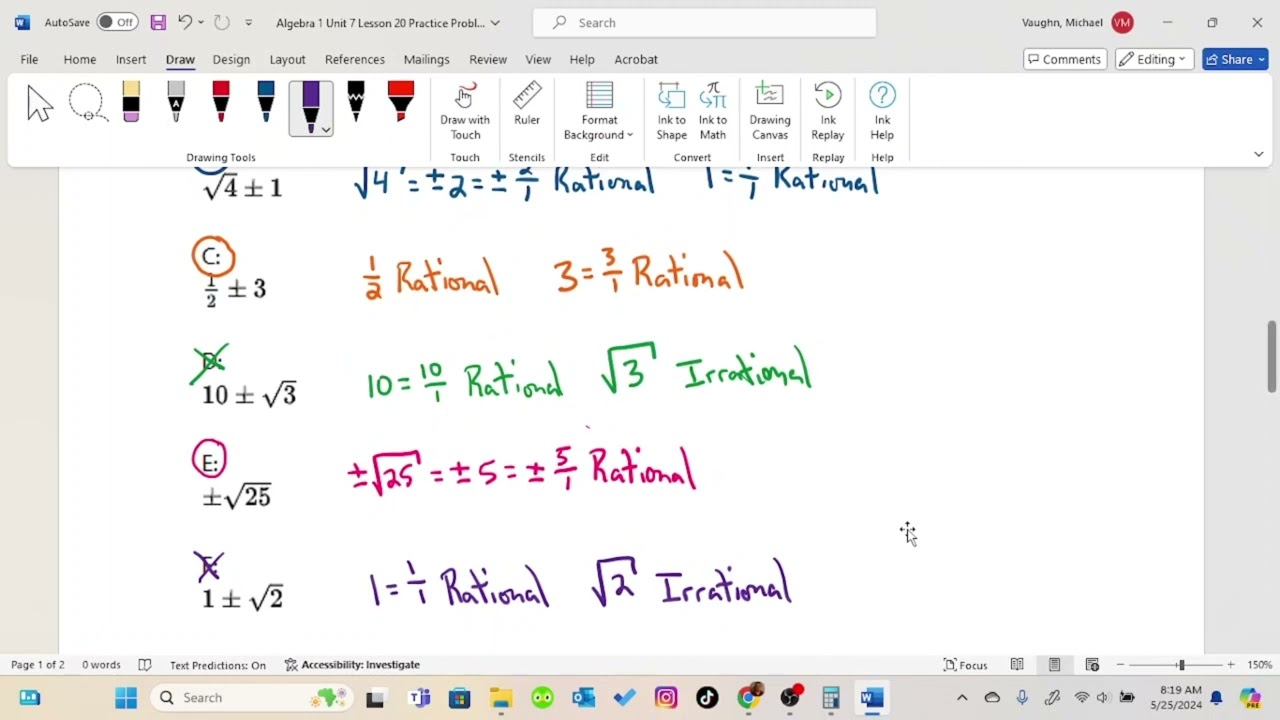 AutoSave Off Algebra 1 Unit 7 Lesson 20 Practice Probl... Search Vaughn, Michael VM
File Home Insert Draw Design Layout References Mailings Review View Help Acrobat Comments Editing Share
Draw with Touch Ruler Format Background Ink to Shape Ink to Math Drawing Canvas Ink Replay Ink Help
Drawing Tools Touch Stencils Edit Convert Insert Replay Help
√4 ± 1 √4 = ±2 = ± 2/1 Rational 1 = 1/1 Rational
C:
1/2 ± 3 1/2 Rational 3 = 3/1 Rational
D:
10 ± √3 10 = 10/1 Rational √3 Irrational
E:
±√25 ±√25 = ±5 = ± 5/1 Rational
F:
1 ± √2 1 = 1/1 Rational √2 Irrational
Page 1 of 2 0 words Text Predictions: On Accessibility: Investigate Focus 150%
Search 8:19 AM
5/25/2024
PRE